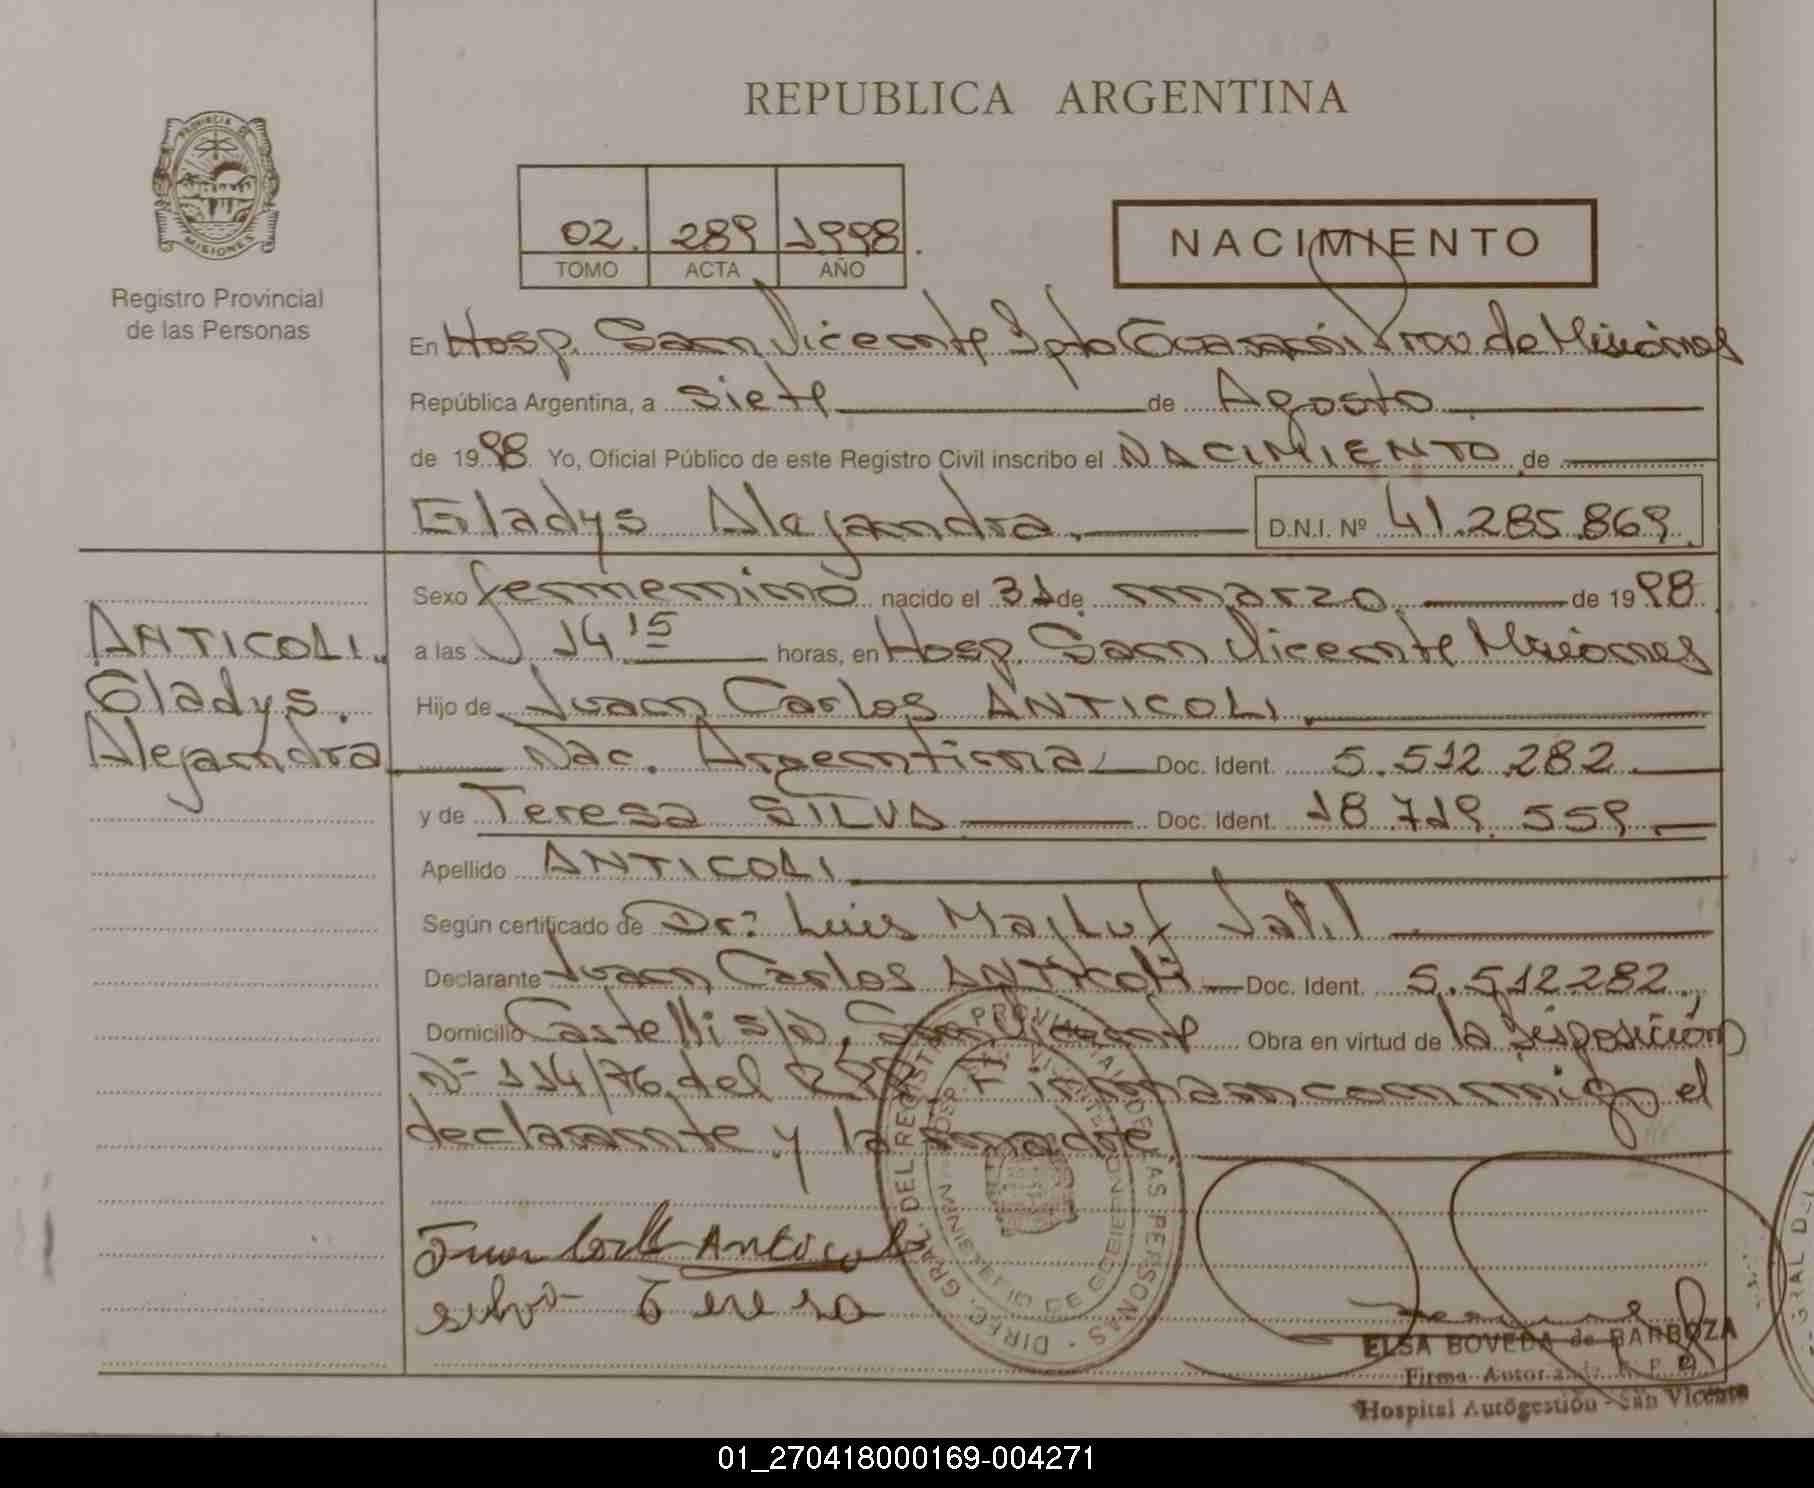 REPUBLICA ARGENTINA
PROVINCIA DE
MISIONES
Registro Provincial
de las Personas
02. 289 1998
TOMO ACTA AÑO
NACIMIENTO
En Hosp. San Vicente Dpto Guaraní Prov de Misiones
República Argentina, a siete de Agosto
de 1998 Yo, Oficial Público de este Registro Civil inscribo el NACIMIENTO de
Gladys Alejandra. D.N.I. Nº 41.285.869
Sexo femenino nacido el 31 de marzo de 1998
a las 14 15 horas, en Hosp. San Vicente Misiones
Hijo de Juan Carlos ANTICOLI
Nac. Argentina Doc. Ident. 5.512.282
y de Teresa SILVA Doc. Ident. 18.719.559
Apellido ANTICOLI
Según certificado de Dr: Luis Majluf Jalil
Declarante Juan Carlos ANTICOLI Doc. Ident. 5.512.282
Domicilio Castelli s/n. San Vicente Obra en virtud de la disposición
Nº 114/76 del RPP Firman conmigo el
declarante y la madre.
ANTICOLI
Gladys.
Alejandra
Juan Carlos Anticoli
silva Teresa
DIREC. GRAL. DEL REGISTRO PROVINCIAL DE LAS PERSONAS
MINISTERIO DE GOBIERNO
ELSA BOVEDA de BARBOZA
Firma Autorizada R. P. P.
Hospital Autogestión - San Vicente
01_270418000169-004271